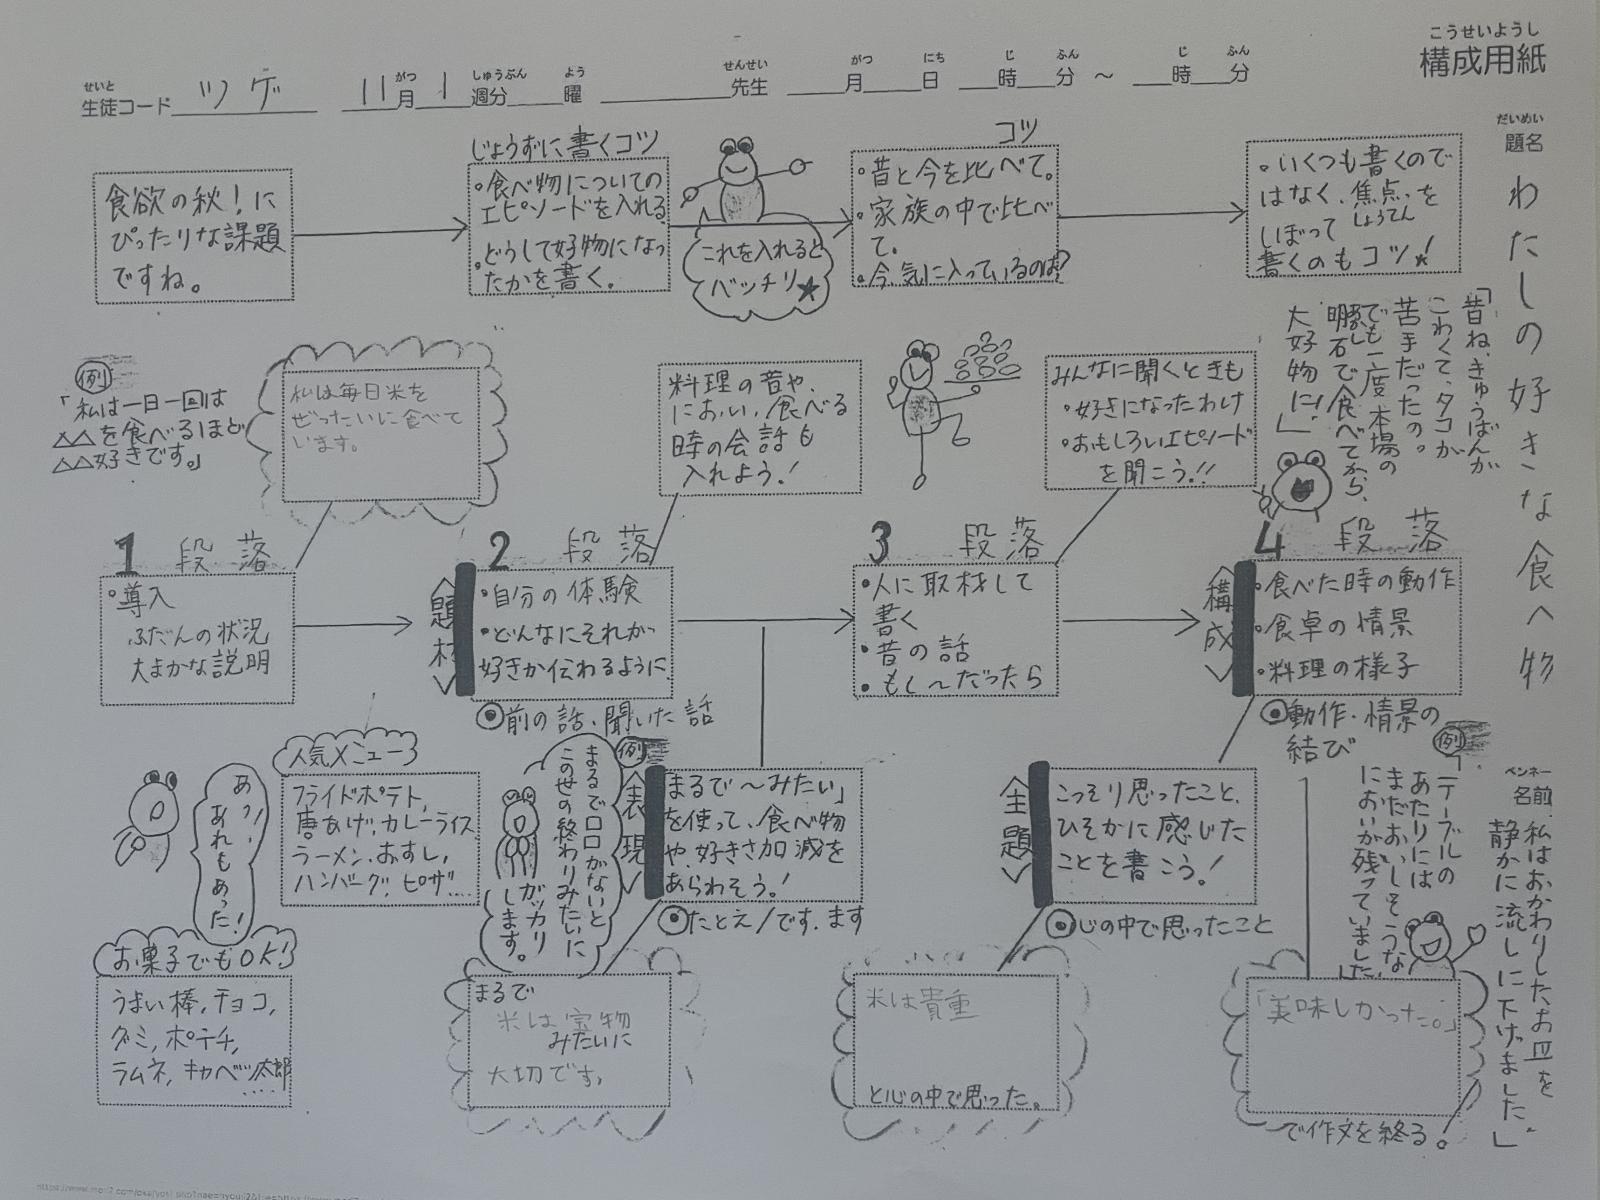 こうせいようし
構成用紙
せいと
生徒コード ツゲ 11月1週分 曜 先生 月 日 時 分 ～ 時 分
がつ しゅうぶん よう せんせい がつ にち じ ふん じ ふん
だいめい
題名
わたしの好きな食べ物
食欲の秋!に
ぴったりな課題
ですね。
じょうずに書くコツ
・食べ物についての
エピソードを入れる
・どうして好物になっ
たかを書く。
これを入れると
バッチリ★
コツ
・昔と今を比べて。
・家族の中で比べ
て。
・今、気に入っているのは?
・いくつも書くので
はなく、焦点を
しょうてん
しぼって
書くのもコツ!
例
「私は一日一回は
△△を食べるほど
△△好きです。」
私は毎日米を
ぜったいに食べて
います。
料理の音や、
におい、食べる
時の会話も
入れよう!
みんなに聞くときも
・好きになったわけ
・おもしろいエピソード
を聞こう!!
「昔ね、きゅうばんが
こわくて、タコが
苦手だったの。
でも一度本場の
明石で食べてから、
大好物に!」
1 段落
・導入
ふだんの状況
大まかな説明
2 段落
<題材>
・自分の体験
・どんなにそれが
好きか伝わるように
◎前の話・聞いた話
3 段落
・人に取材して
書く
・昔の話
・もし～だったら
4 段落
<構成>
・食べた時の動作
・食卓の情景
・料理の様子
◎動作・情景の
結び
あっ!
あれもあった!
人気メニュー
フライドポテト、
唐あげ、カレーライス
ラーメン、おすし、
ハンバーグ、ピザ....
お菓子でもOK!
うまい棒、チョコ、
グミ、ポテチ、
ラムネ、キャベツ太郎
....
例
まるで口口がないと
この世の終わりみたいに
ガッカリ
します。
<表現>
まるで～みたい」
を使って、食べ物
や、好きさ加減を
あらわそう!
◎たとえ/です.ます
まるで
米は宝物
みたいに
大切です。
<主題>
こっそり思ったこと、
ひそかに感じた
ことを書こう!
◎心の中で思ったこと
米は貴重
と心の中で思った。
例
「テーブルの
あたりには
まだおいしそうな
においが残っていました
「美味しかった。」
で作文を終る。
ペンネーム
名前
私はおかわりしたお皿を
静かに流しに下げました。」